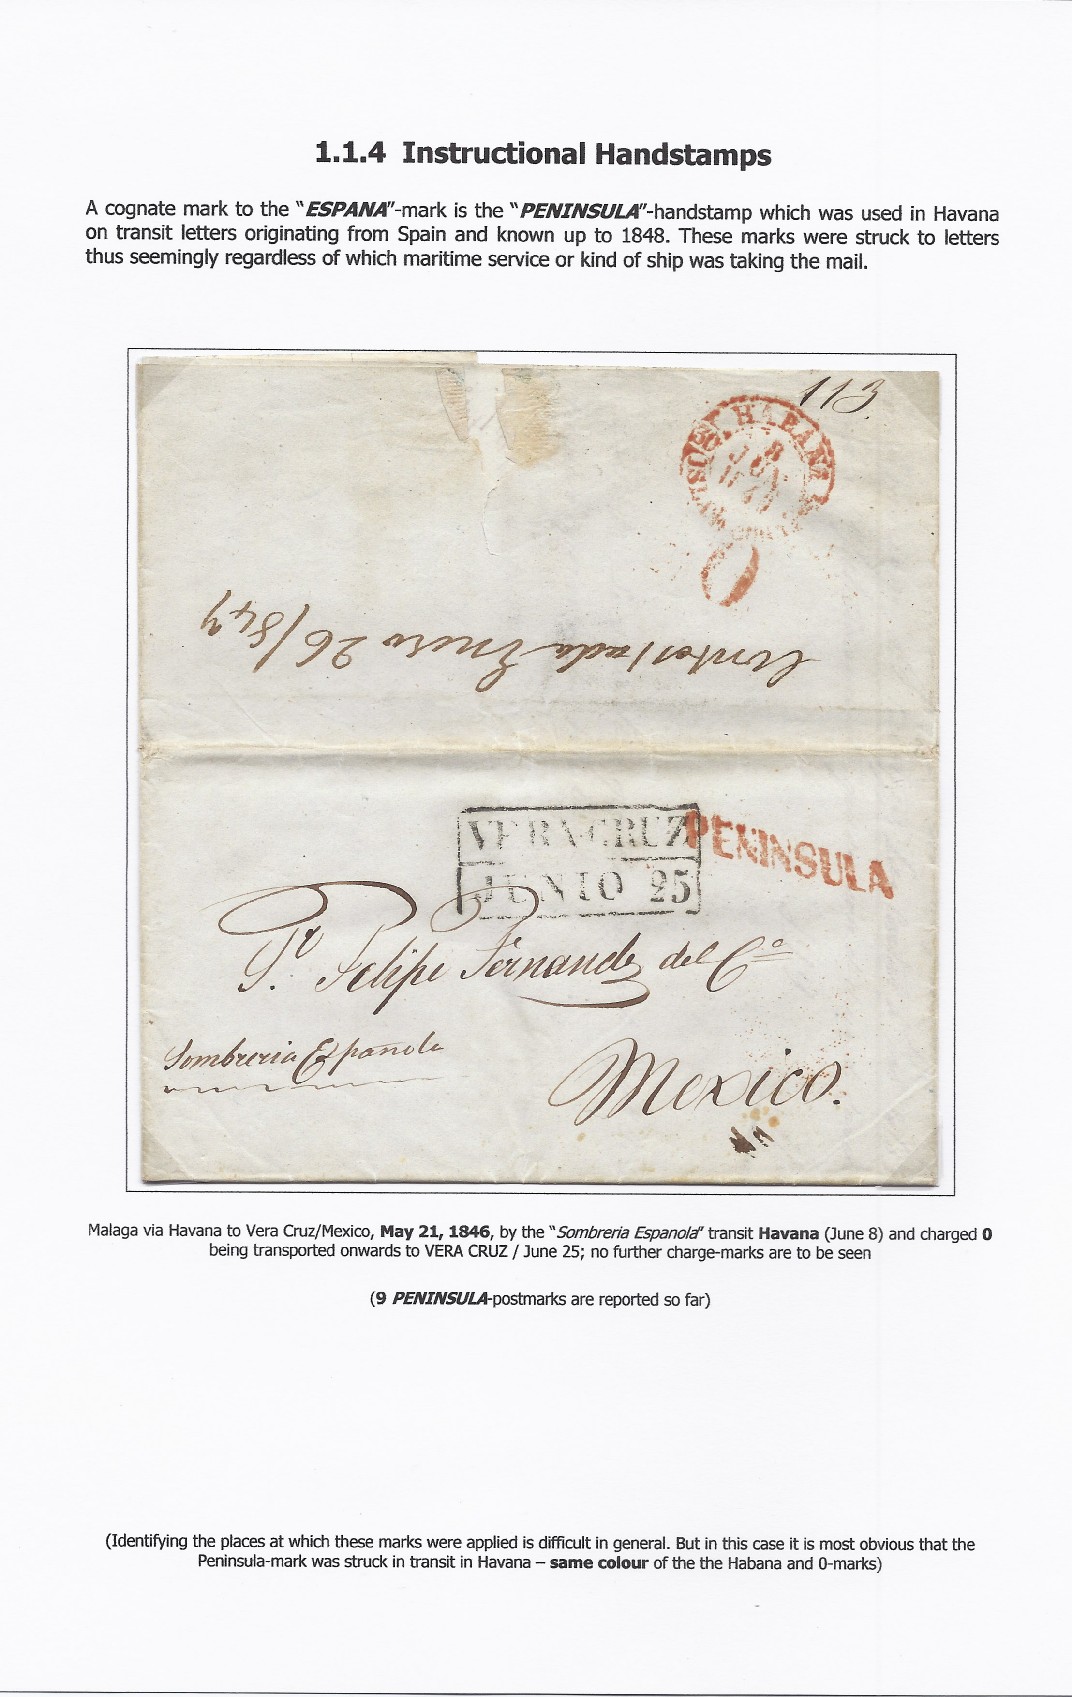 1.1.4 Instructional Handstamps
A cognate mark to the "ESPANA"-mark is the "PENINSULA"-handstamp which was used in Havana
on transit letters originating from Spain and known up to 1848. These marks were struck to letters
thus seemingly regardless of which maritime service or kind of ship was taking the mail.
113.
HABANA
8
JUN
0
Enero 26/847
VERA-CRUZ
JUNIO 25
PENINSULA
Felipe Fernandz del Cº
Sombreria Española
Mexico.
Malaga via Havana to Vera Cruz/Mexico, May 21, 1846, by the "Sombreria Espanola" transit Havana (June 8) and charged 0
being transported onwards to VERA CRUZ / June 25; no further charge-marks are to be seen
(9 PENINSULA-postmarks are reported so far)
(Identifying the places at which these marks were applied is difficult in general. But in this case it is most obvious that the
Peninsula-mark was struck in transit in Havana – same colour of the the Habana and 0-marks)